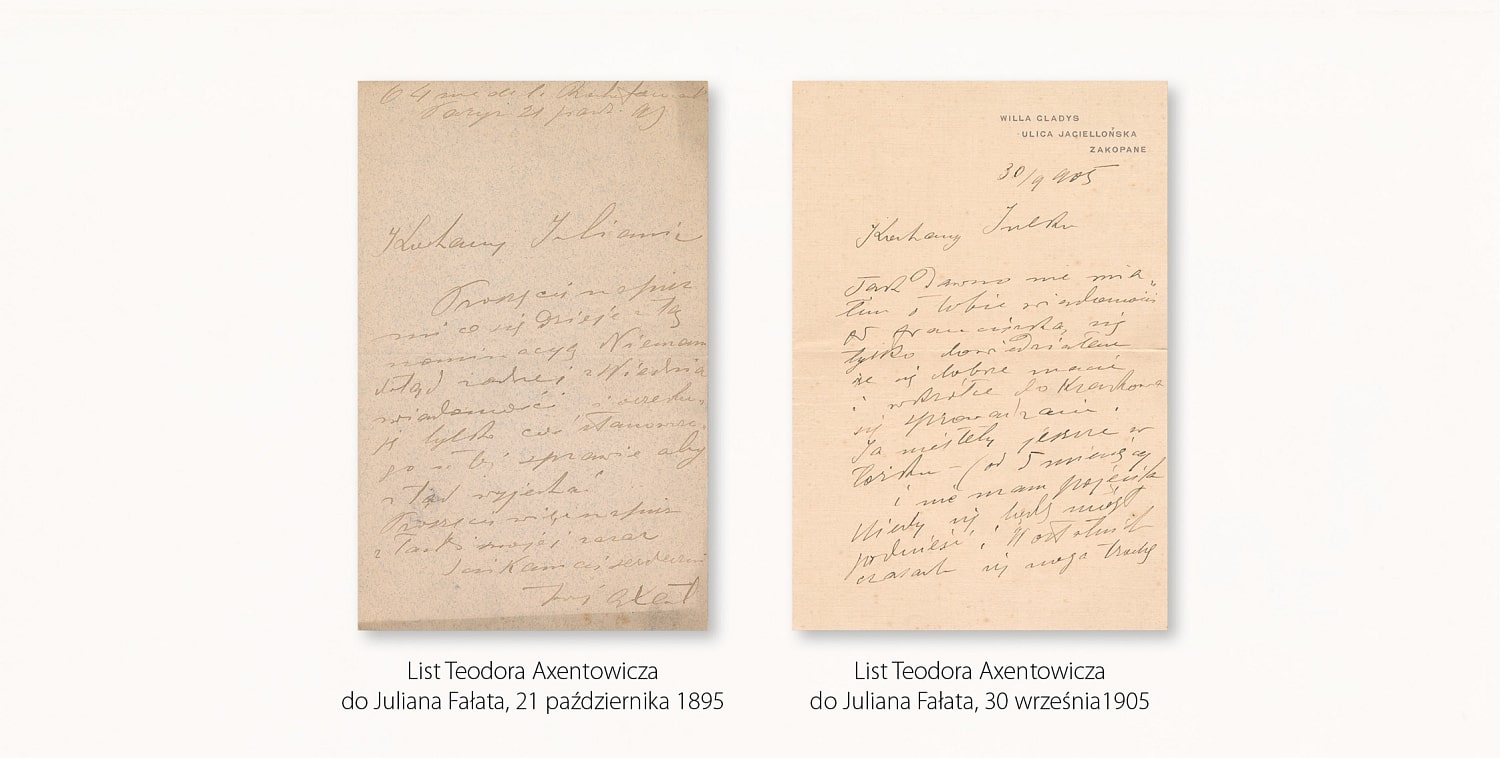 64 rue de la
Paryż 21 paźd. 95
Kochany Julianie
Proszę cię napisz
mi co się dzieje z tą
nominacyą Niemam
dotąd żadnej z Wiednia
wiadomości i oczeku-
ję tylko coś stanowcze-
go w tej sprawie aby
ztąd wyjechać
Proszę cię więc napisz
z łaski swojej zaraz
Ściskam cię serdecznie
Twój Axent
List Teodora Axentowicza
do Juliana Fałata, 21 października 1895
WILLA GLADYS
ULICA JAGIELLOŃSKA
ZAKOPANE
30/9 905
Kochany Julku
Tak dawno nie mia-
łem o Tobie wiadomości
od się
tylko dowiedziałem
że się dobrze macie
i wkrótce do Krakowa
się sprowadzacie.
Ja niestety jeszcze w
łóżku – (od 5 miesięcy
i nie mam pojęcia
kiedy się będę mógł
podnieść, W ostatnich
czasach się moga
List Teodora Axentowicza
do Juliana Fałata, 30 września1905